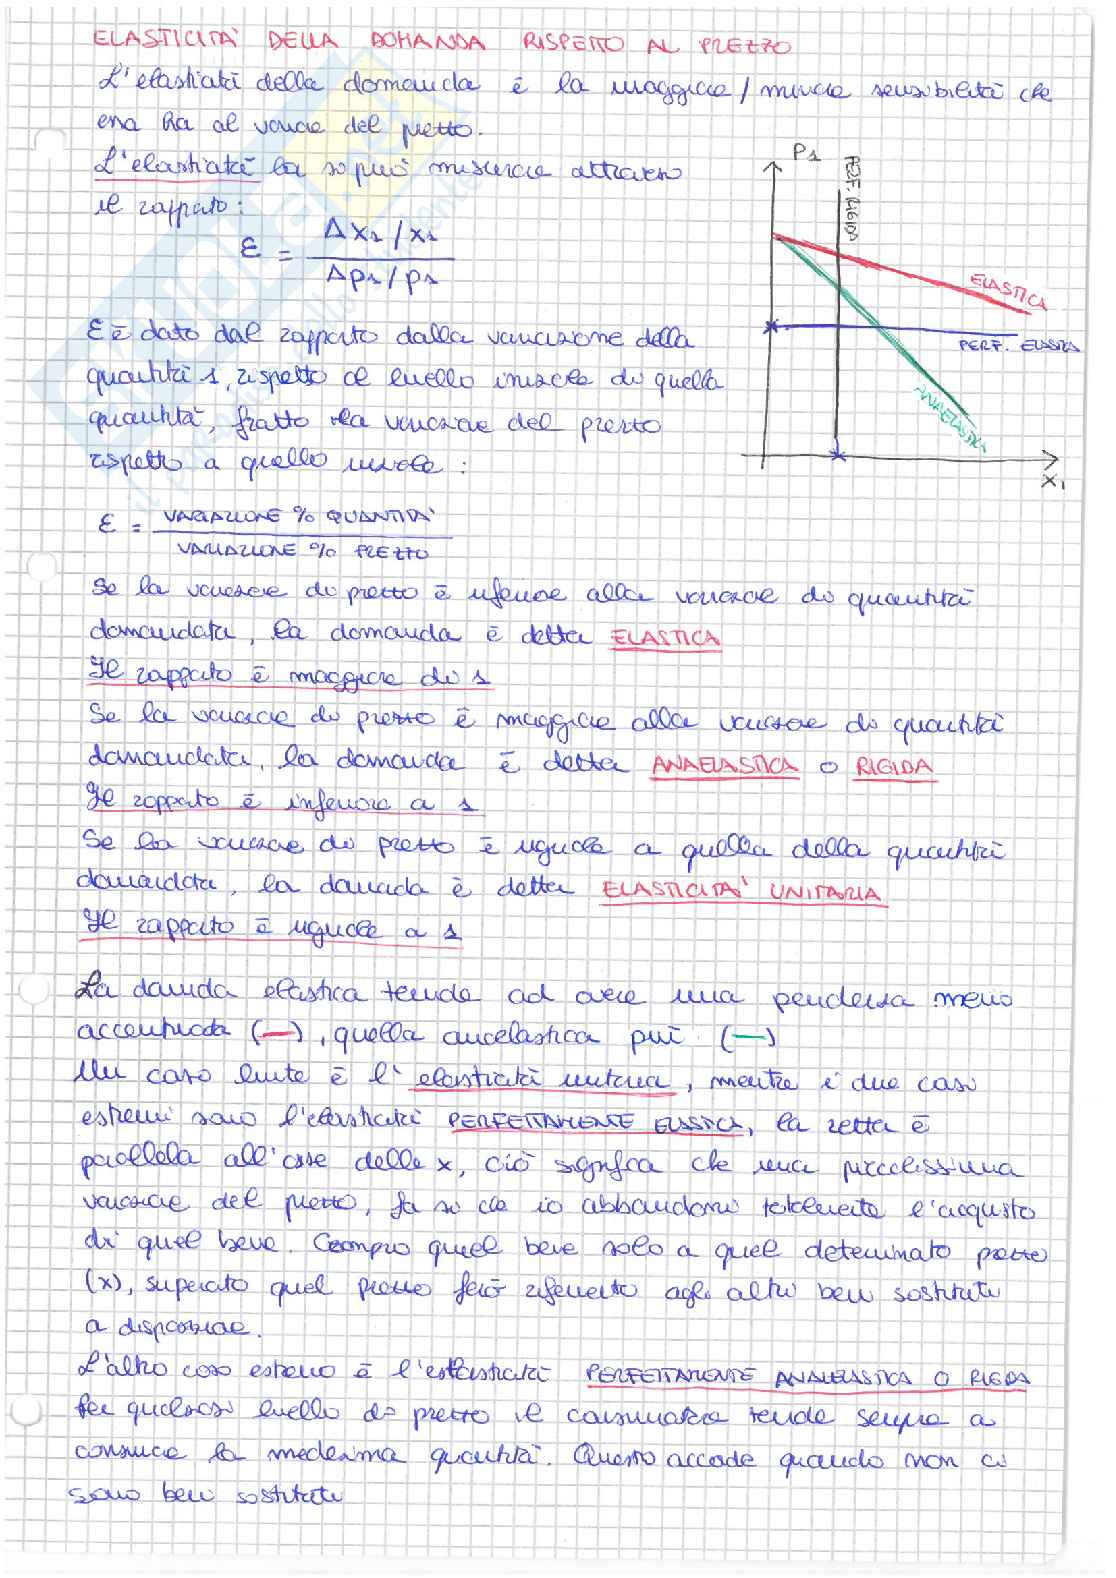 ELASTICITA' DELLA DOMANDA RISPETTO AL PREZZO
L'elasticità della domanda è la maggiore/minore sensibilità che
essa ha al variare del prezzo.
L'elasticità la si può misurare attraverso
il rapporto:
ε = Δx1/x1
Δp1/p1
P1
PERF. RIGIDA
ELASTICA
PERF. ELASTICA
ANAELASTICA
X1
ε è dato dal rapporto dalla variazione della
quantità 1, rispetto al livello iniziale di quella
quantità, fratto la variazione del prezzo
rispetto a quello iniziale:
ε = VARIAZIONE % QUANTITA'
VARIAZIONE % PREZZO
Se la variazione di prezzo è inferiore alla variazione di quantità
domandata, la domanda è detta ELASTICA
Il rapporto è maggiore di 1
Se la variazione di prezzo è maggiore alla variazione di quantità
domandata, la domanda è detta ANAELASTICA O RIGIDA
Il rapporto è inferiore a 1
Se la variazione di prezzo è uguale a quella della quantità
domandata, la domanda è detta ELASTICITA' UNITARIA
Il rapporto è uguale a 1
La domanda elastica tende ad avere una pendenza meno
accentuata (—), quella anaelastica più (—)
Un caso limite è l'elasticità unitaria, mentre i due casi
estremi sono l'elasticità PERFETTAMENTE ELASTICA, la retta è
parallela all'asse delle x, ciò significa che una piccolissima
variazione del prezzo, fa si che io abbandoni totalmente l'acquisto
di quel bene. Compro quel bene solo a quel determinato prezzo
(x), superato quel prezzo farò riferimento agli altri beni sostituti
a disposizione.
L'altro caso estremo è l'elasticità PERFETTAMENTE ANAELASTICA O RIGIDA
Per qualsiasi livello di prezzo il consumatore tende sempre a
consumare la medesima quantità. Questo accade quando non ci
sono beni sostituti